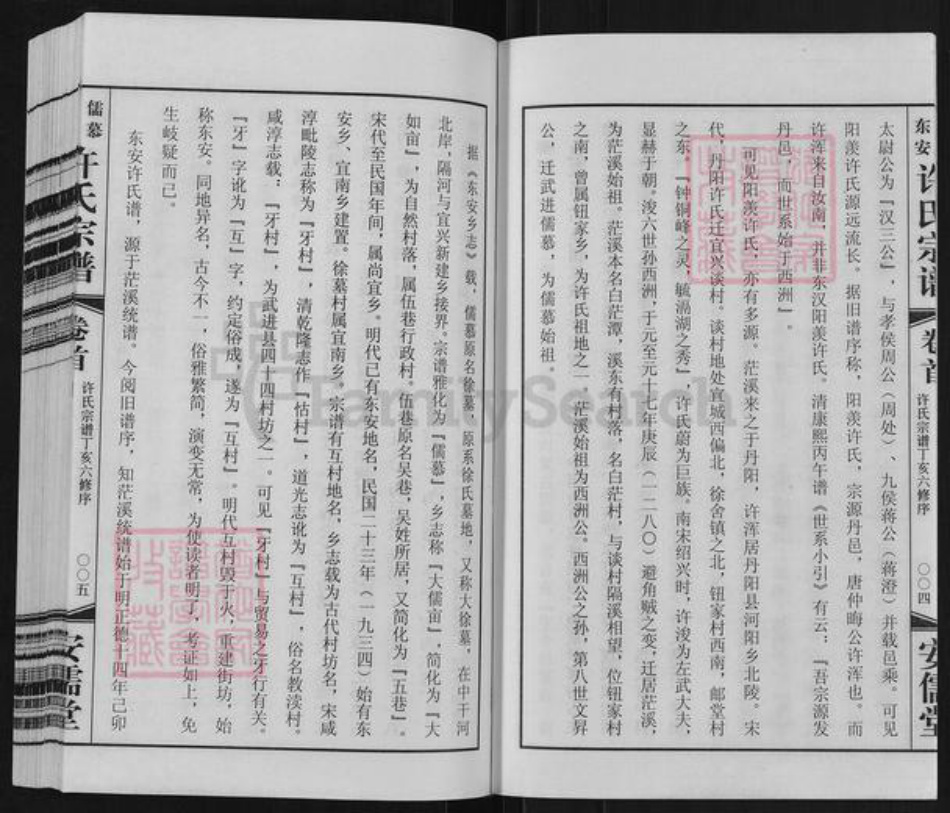 东安 许氏宗谱 卷首 许氏宗谱丁亥六修序 〇〇四 安儒堂
太尉公为『汉三公』，与孝侯周公（周处）、九侯蒋公（蒋澄）并载邑乘。可见
阳羡许氏源远流长。据旧谱序称，阳羡许氏，宗源丹邑，唐仲晦公许浑也。而
许浑来自汝南，并非东汉阳羡许氏。清康熙丙午谱《世系小引》有云：『吾宗源发
丹邑，而世系始于西洲』。
可见阳羡许氏，亦有多源。茫溪来之于丹阳，许浑居丹阳县河阳乡北陵。宋
代，丹阳许氏迁宜兴谈村。谈村地处宜城西偏北，徐舍镇之北，钮家村西南，邮堂村
之东。『钟铜峰之灵，毓滆湖之秀』，许氏蔚为巨族。南宋绍兴时，许浚为左武大夫，
显赫于朝。浚六世孙西洲，于元至元十七年庚辰（一二八〇）避角贼之变，迁居茫溪，
为茫溪始祖。茫溪本名白茫潭，溪东有村落，名白茫村，与谈村隔溪相望，位钮家村
之南，曾属钮家乡，为许氏祖地之一。茫溪始祖为西洲公。西洲公之孙，第八世文昇
公，迁武进儒慕，为儒慕始祖。
据《东安乡志》载，儒慕原名徐墓，原系徐氏墓地，又称大徐墓，在中干河
北岸，隔河与宜兴新建乡接界。宗谱雅化为『儒慕』，乡志称『大儒亩』，简化为『大
如亩』，为自然村落，属伍巷行政村。伍巷原名吴巷，吴姓所居，又简化为『五巷』。
宋代至民国年间，属尚宜乡。明代已有东安地名，民国二十三年（一九三四）始有东
安乡、宜南乡建置。徐墓村属宜南乡。宗谱有互村地名，乡志载为古代村坊名，宋咸
淳毗陵志称为『牙村』，清乾隆志作『怙村』，道光志讹为『互村』，俗名教渎村。
咸淳志载：『牙村』，为武进县四十四村坊之一。可见『牙村』与贸易之牙行有关。
『牙』字讹为『互』字，约定俗成，遂为『互村』。明代互村毁于火，重建街坊，始
称东安。同地异名，古今不一，俗雅繁简，演变无常，为使读者明了，考证如上，免
生岐疑而已。
东安许氏谱，源于茫溪统谱。今阅旧谱序，知茫溪统谱始于明正德十四年己卯
儒慕 许氏宗谱 卷首 许氏宗谱丁亥六修序 〇〇五 安儒堂
FamilySearch